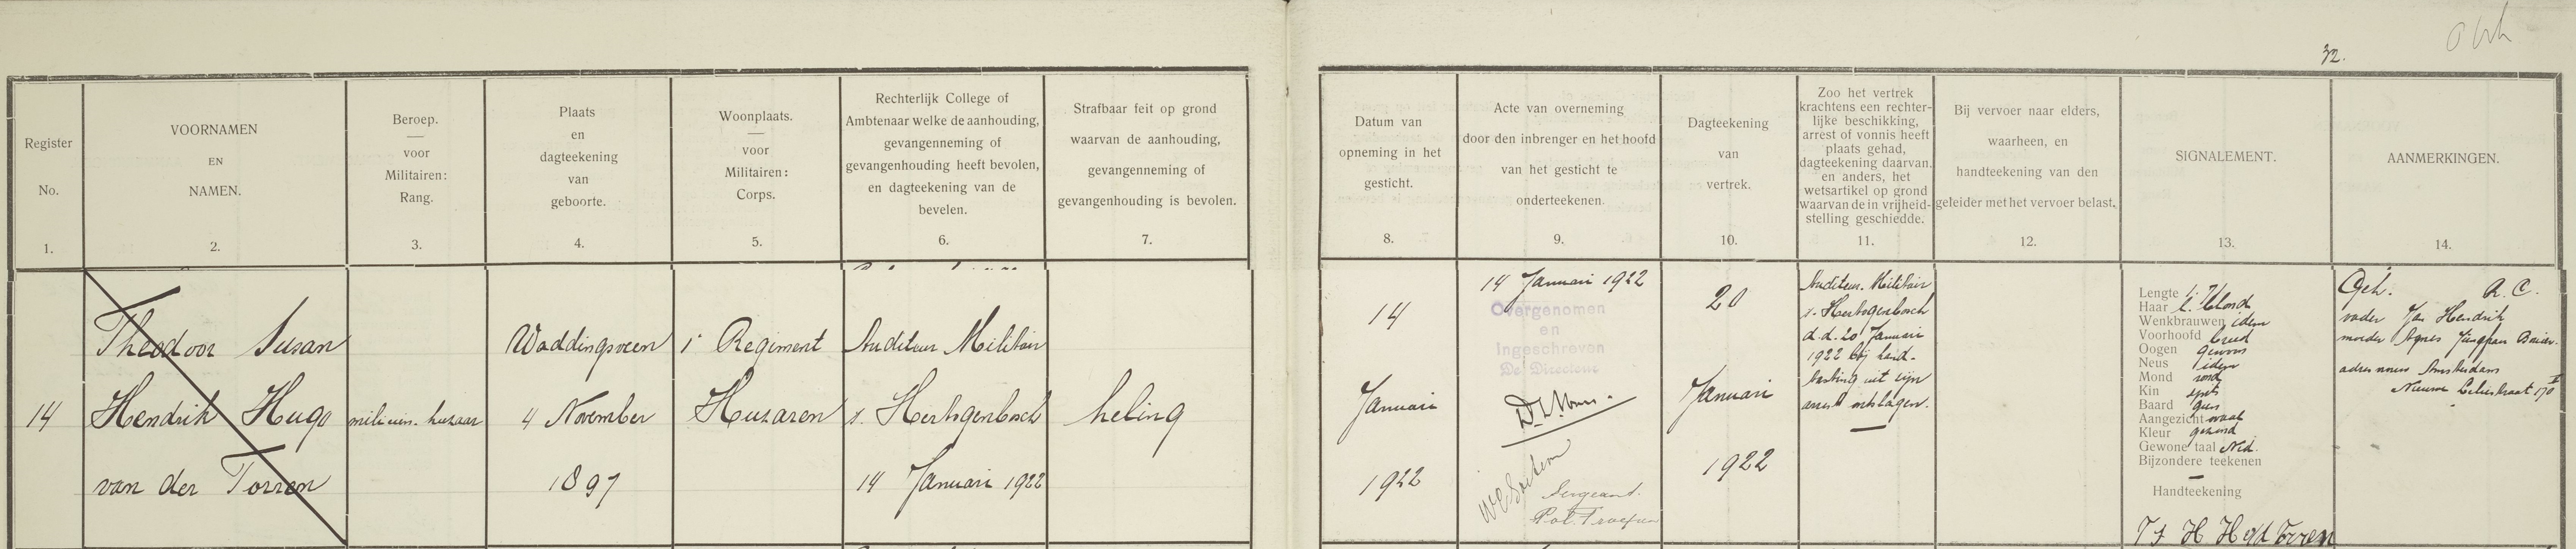 32.
Register
No.
1.
VOORNAMEN
EN
NAMEN.
2.
Beroep.
voor
Militairen:
Rang.
3.
Plaats
en
dagteekening
van
geboorte.
4.
Woonplaats.
voor
Militairen:
Corps.
5.
Rechterlijk College of
Ambtenaar welke de aanhouding,
gevangenneming of
gevangenhouding heeft bevolen,
en dagteekening van de
bevelen.
6.
Strafbaar feit op grond
waarvan de aanhouding,
gevangenneming of
gevangenhouding is bevolen.
7.
Datum van
opneming in het
gesticht.
8.
Acte van overneming
door den inbrenger en het hoofd
van het gesticht te
onderteekenen.
9.
Dagteekening
van
vertrek.
10.
Zoo het vertrek
krachtens een rechter-
lijke beschikking,
arrest of vonnis heeft
plaats gehad,
dagteekening daarvan,
en anders, het
wetsartikel op grond
waarvan de in vrijheid-
stelling geschiedde.
11.
Bij vervoer naar elders,
waarheen, en
handteekening van den
geleider met het vervoer belast.
12.
SIGNALEMENT.
13.
AANMERKINGEN.
14.
14
Theodoor Susan
Hendrik Hugo
van der Torren
milicien-huzaar
Waddingsveen
4 November
1897
1e Regiment
Huzaren
Auditeur Militair
s. Hertogenbosch
14 Januari 1922
heling
14
Januari
1922
14 Januari 1922
Overgenomen
en
Ingeschreven
De Directeur
Sergeant.
Pol. Troepen
20
Januari
1922
Auditeur-Militair
s. Hertogenbosch
d.d. 20 Januari
1922 bij hand-
lichting uit zijn
arrest ontslagen.
Lengte 1.71
Haar l. blond
Wenkbrauwen idem
Voorhoofd breed
Oogen gewoon
Neus idem
Mond rond
Kin spits
Baard geen
Aangezicht ovaal
Kleur gezond
Gewone taal Ned.
Bijzondere teekenen
Handteekening
T S H H vd Torren
Geh. R.C.
vader Jan Hendrik
moeder Agnes
adres vrouw Amsterdam
Nieuwe 170 II